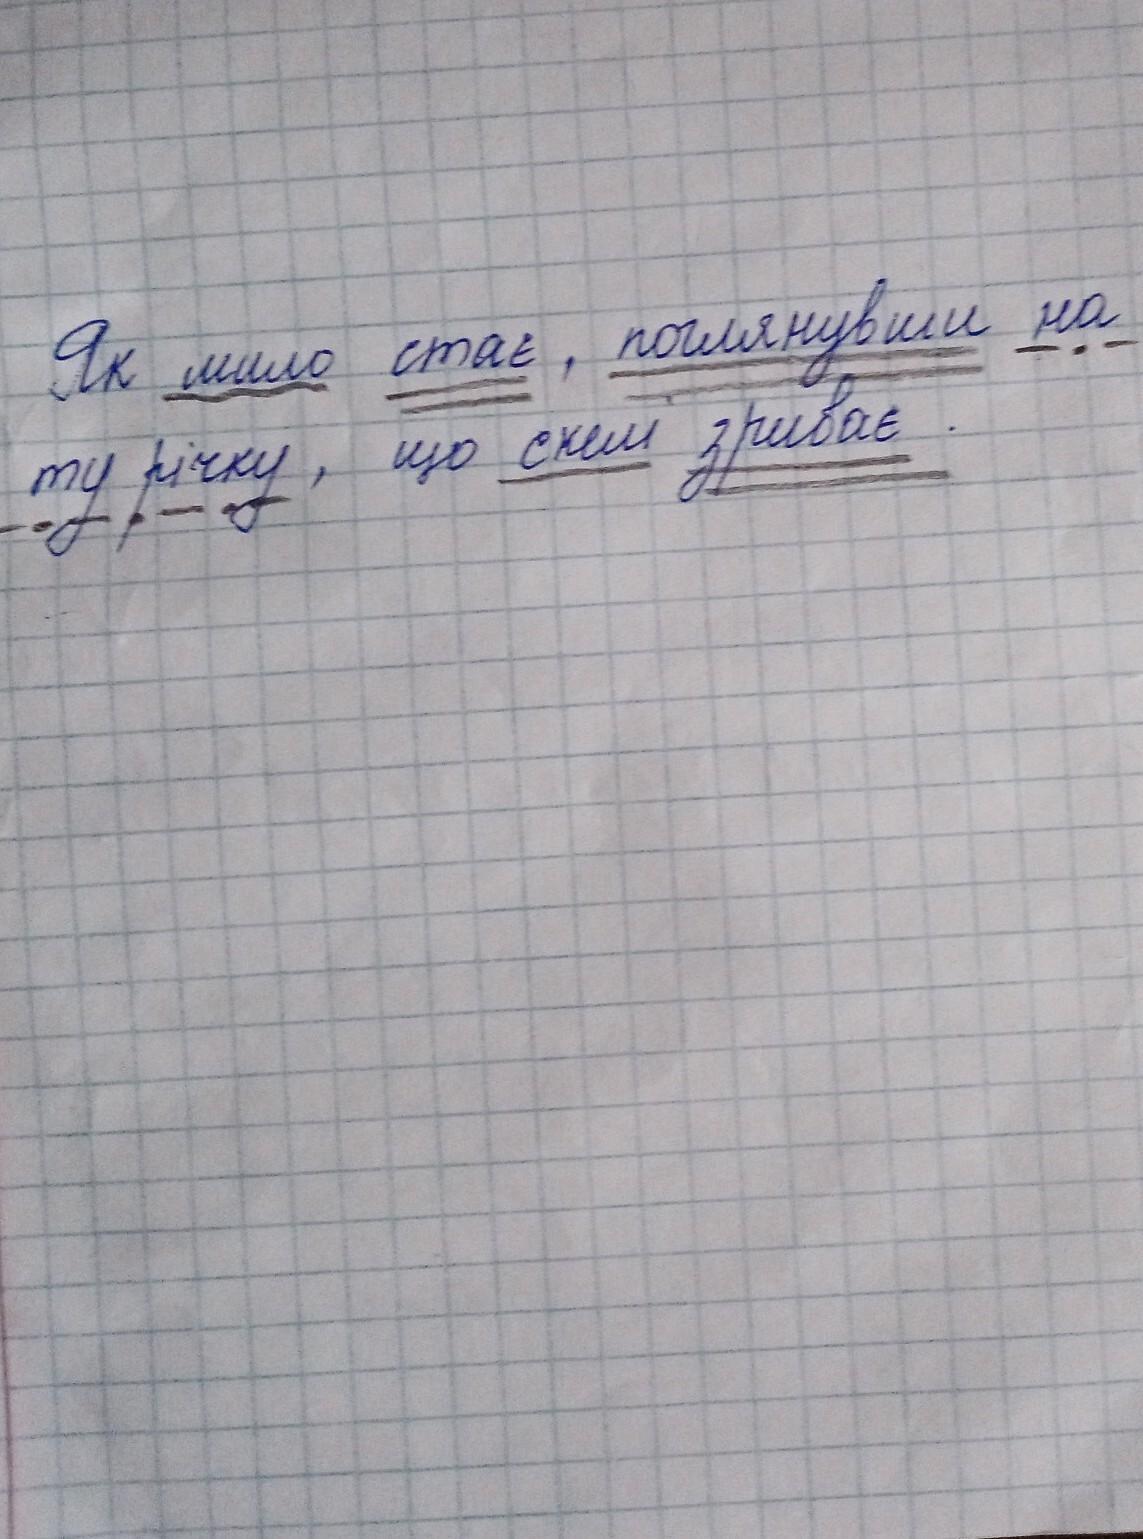 Як мило стає, поглянувши на
ту річку, що схил зриває.